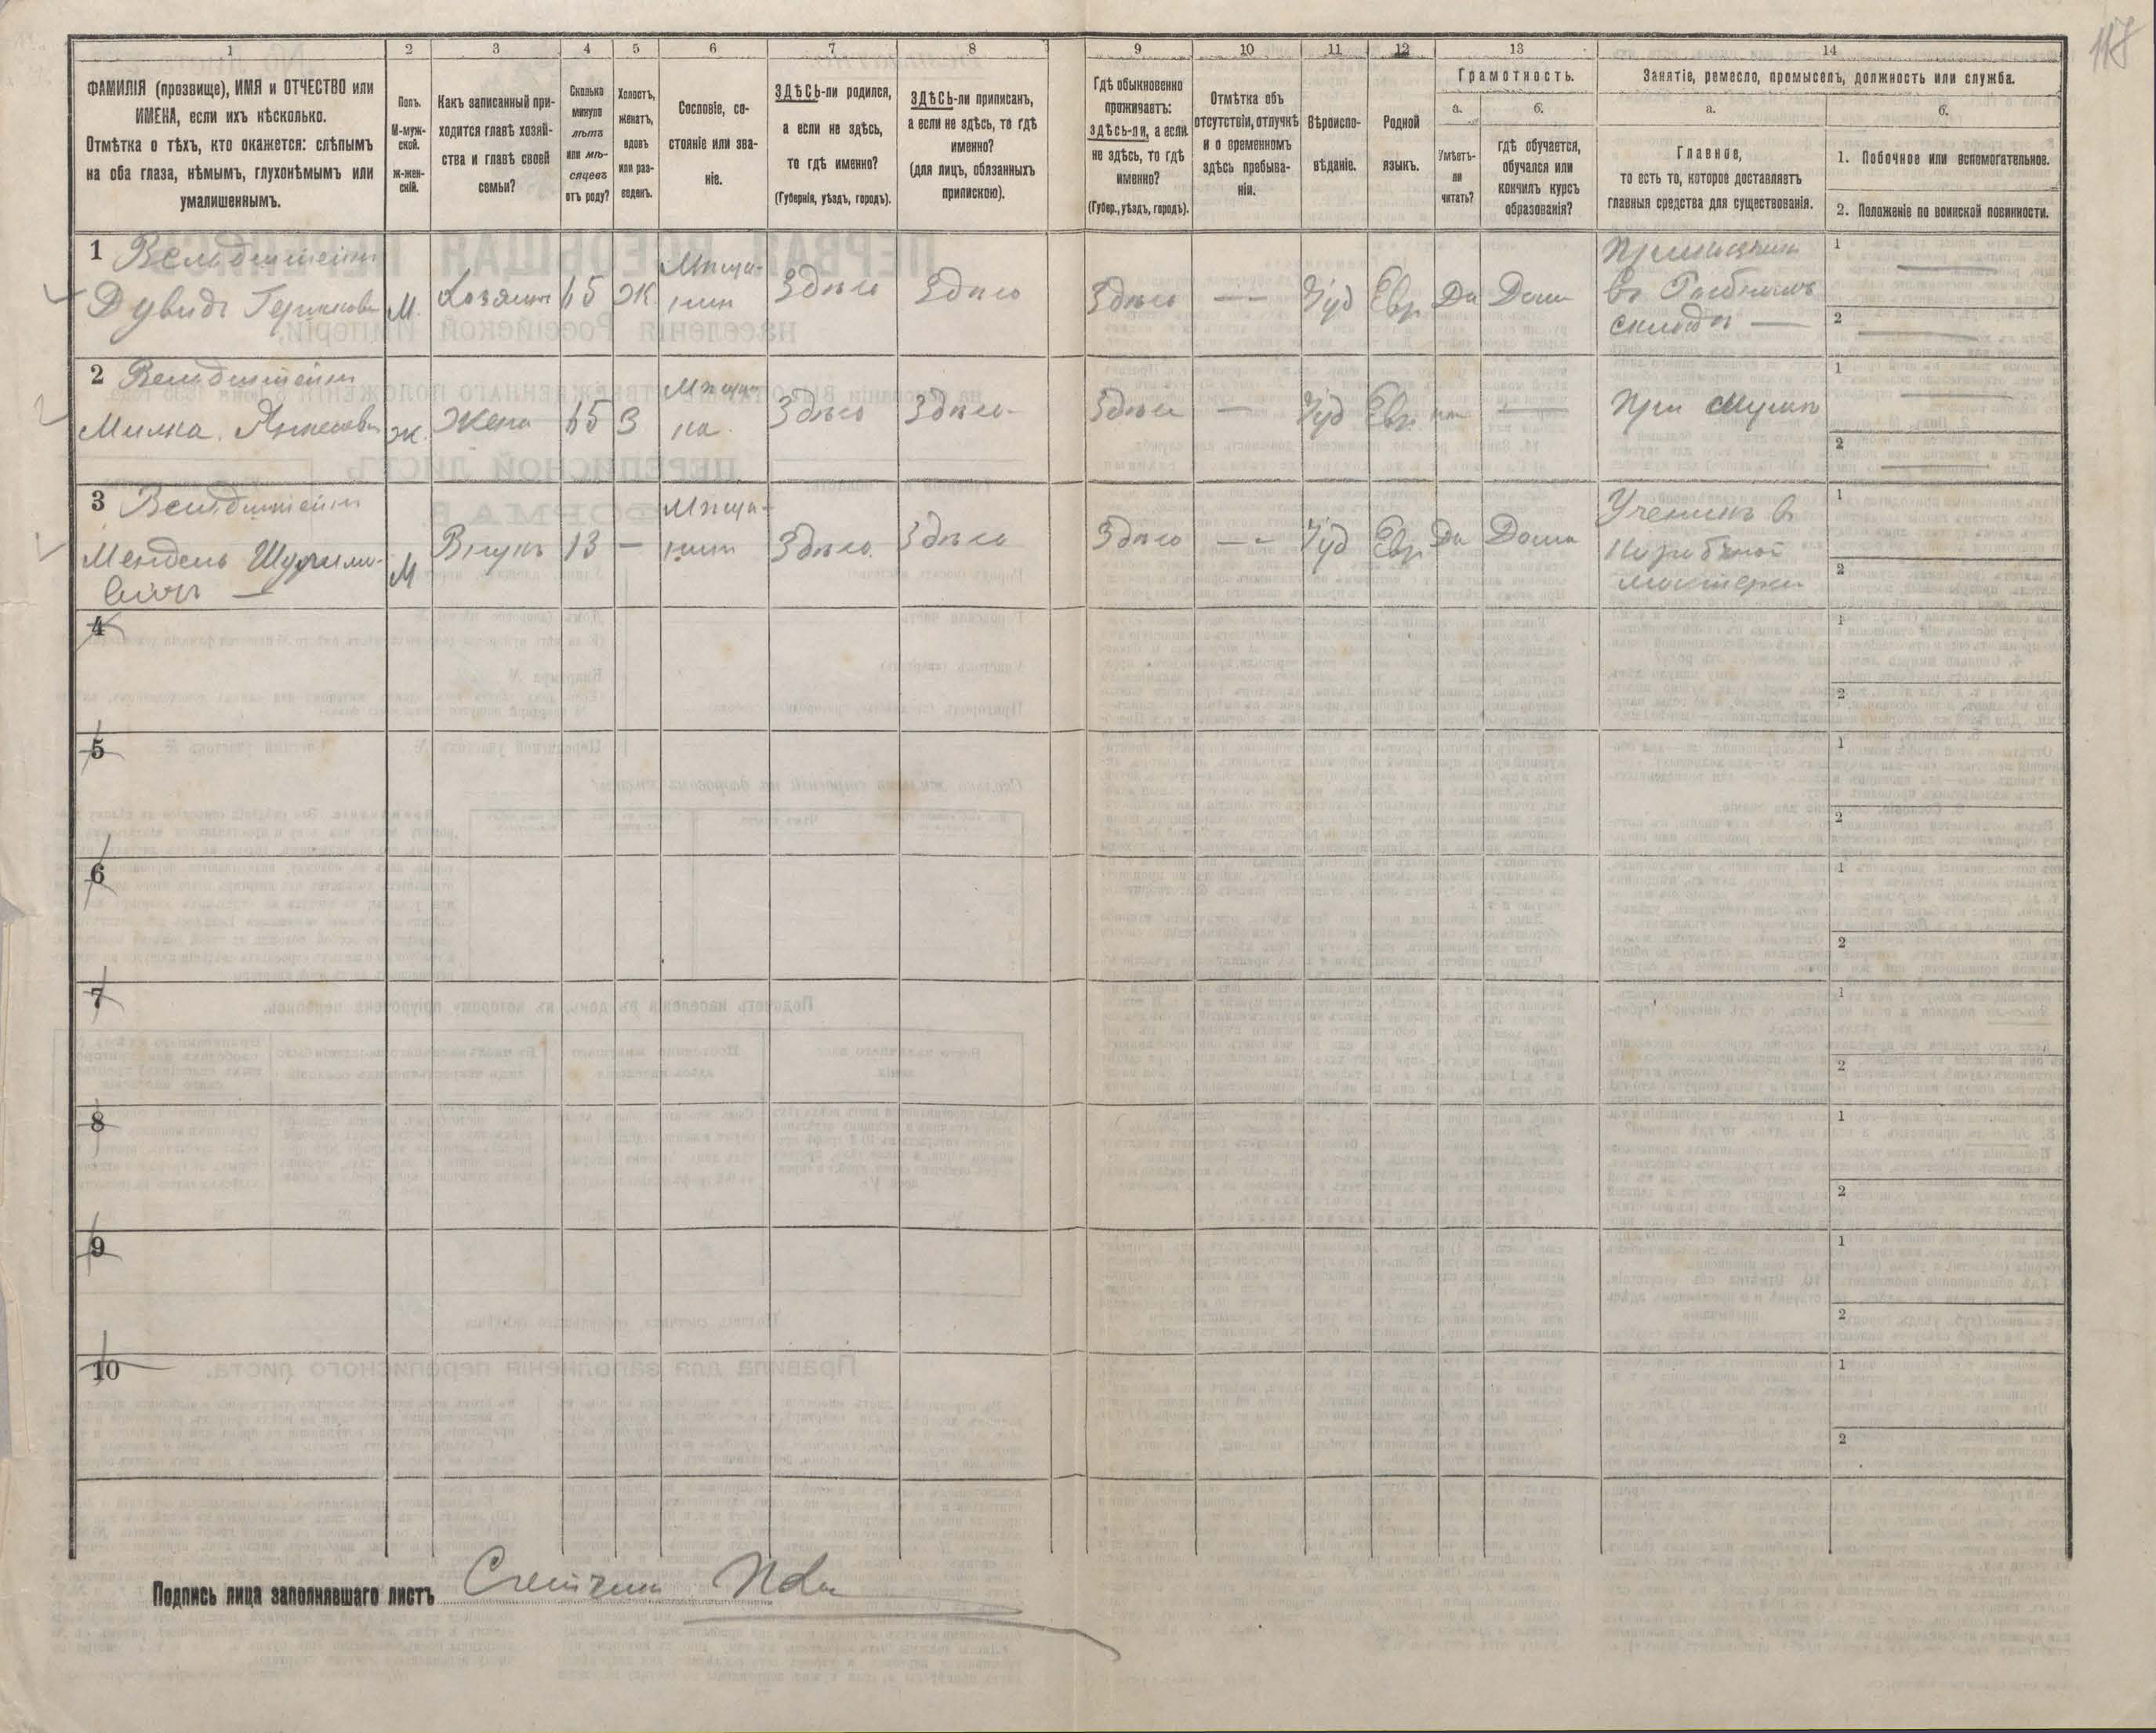 117
1 2 3 4 5 6 7 8 9 10 11 12 13 14
ФАМИЛІЯ (прозвище), ИМЯ и ОТЧЕСТВО или
ИМЕНА, если ихъ нѣсколько.
Отмѣтка о тѣхъ, кто окажется: слѣпымъ
на оба глаза, нѣмымъ, глухонѣмымъ или
умалишеннымъ.
Полъ.
М-муж-
ской.
ж-жен-
скій.
Какъ записанный при-
ходится главѣ хозяй-
ства и главѣ своей
семьи?
Сколько
минуло
лѣтъ
или мѣ-
сяцевъ
отъ роду?
Холостъ,
женатъ,
вдовъ
или раз-
веденъ.
Сословіе, со-
стояніе или зва-
ніе.
ЗДѢСЬ-ли родился,
а если не здѣсь,
то гдѣ именно?
(Губернія, уѣздъ, городъ).
ЗДѢСЬ-ли приписанъ,
а если не здѣсь, то гдѣ
именно?
(для лицъ, обязанныхъ
припискою).
Гдѣ обыкновенно
проживаетъ:
здѣсь-ли, а если
не здѣсь, то гдѣ
именно?
(Губер., уѣздъ, городъ).
Отмѣтка объ
отсутствіи, отлучкѣ
и о временномъ
здѣсь пребыва-
ніи.
Вѣроиспо-
вѣданіе.
Родной
языкъ.
Грамотность.
а.
Умѣетъ-
ли
читать?
б.
гдѣ обучается,
обучался или
кончилъ курсъ
образованія?
Занятіе, ремесло, промыселъ, должность или служба.
а.
Главное,
то есть то, которое доставляетъ
главныя средства для существованія.
б.
1. Побочное или вспомогательное.
2. Положеніе по воинской повинности.
1 Вельдштейн
Дувидъ М. Хозяинъ 65 Ж Мѣща-
нин Здѣсь Здѣсь Здѣсь — Іуд Евр Да Дома
въ
складѣ —
1 —
2 —
2 Вельдштейн
Милка ж. Жена 65 З Мѣщан
ка Здѣсь Здѣсь Здѣсь — Іуд Евр — При мужѣ
1 —
2 —
3 Вельдштейн
Мендель М Внукъ 13 — Мѣща-
нин Здѣсь Здѣсь Здѣсь — Іуд Евр Да Дома
вичъ —
Ученикъ в
мастерск
1
2
4 1
2
5 1
2
6 1
2
7 1
2
8 1
2
9 1
2
10 1
2
Подпись лица заполнявшаго листъ Счетчик